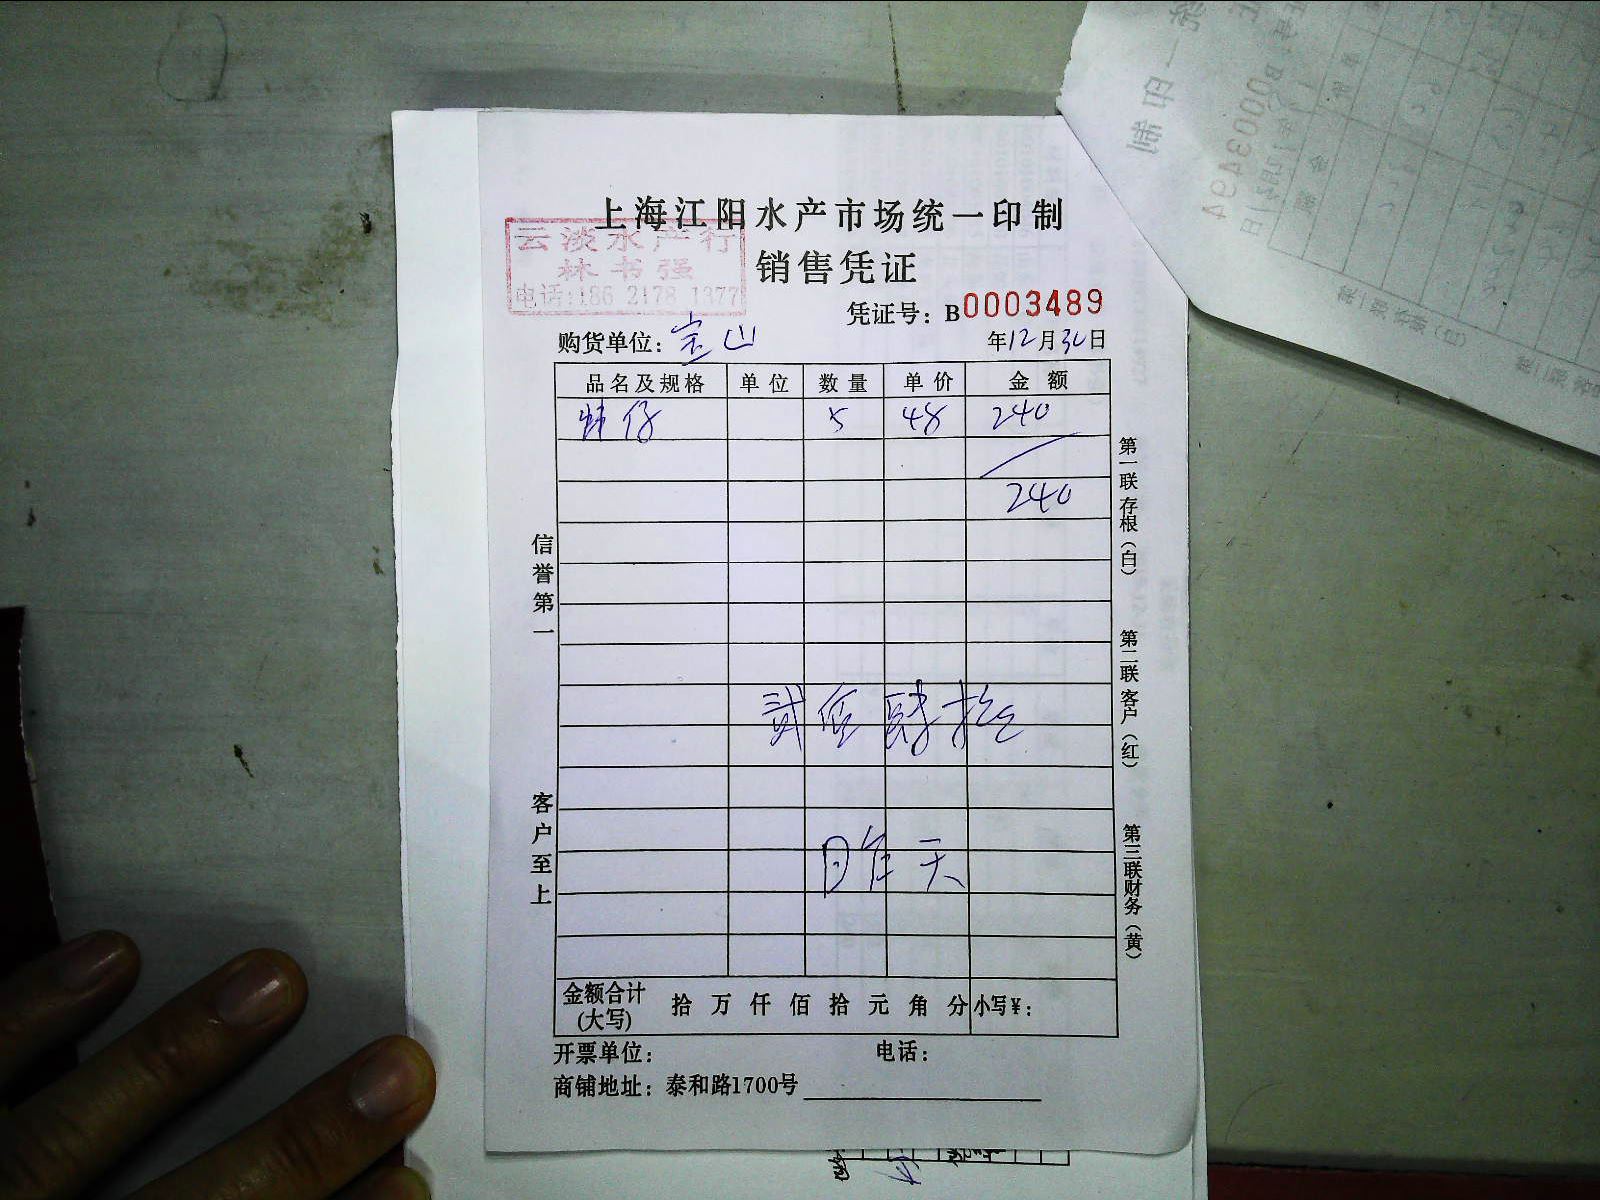 上海江阳水产市场统一印制
云淡水产行
林书强
电话:186 2178 1377
销售凭证
凭证号：B0003489
购货单位：宝山 年12月30日
品名及规格 单位 数量 单价 金额
蚌仔 5 48 240
240
贰佰肆拾
昨天
金额合计(大写) 拾 万 仟 佰 拾 元 角 分 小写￥：
开票单位： 电话：
商铺地址：泰和路1700号
信誉第一
客户至上
第一联存根（白）
第二联客户（红）
第三联财务（黄）
0003494